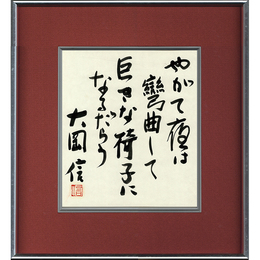 やがて夜は
彎曲して
巨きな椅子に
なるだらう
大岡信